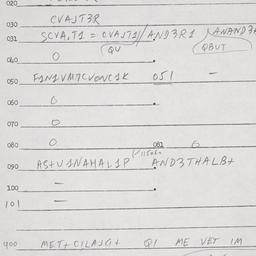 020
030 CVAJT3R
031 SCVA.T1 = CVAJT1 / AND3R1 / ANAND3
QU QBUT
040 0
050 F1N1VM7CVONC1K 051 -
060 0
070 0
080 0 081 6
090 AS+V1NAHAL1P AND3THALB+
100 -
101 -
400 MET+ CILAJG+ Q1 ME VET IM